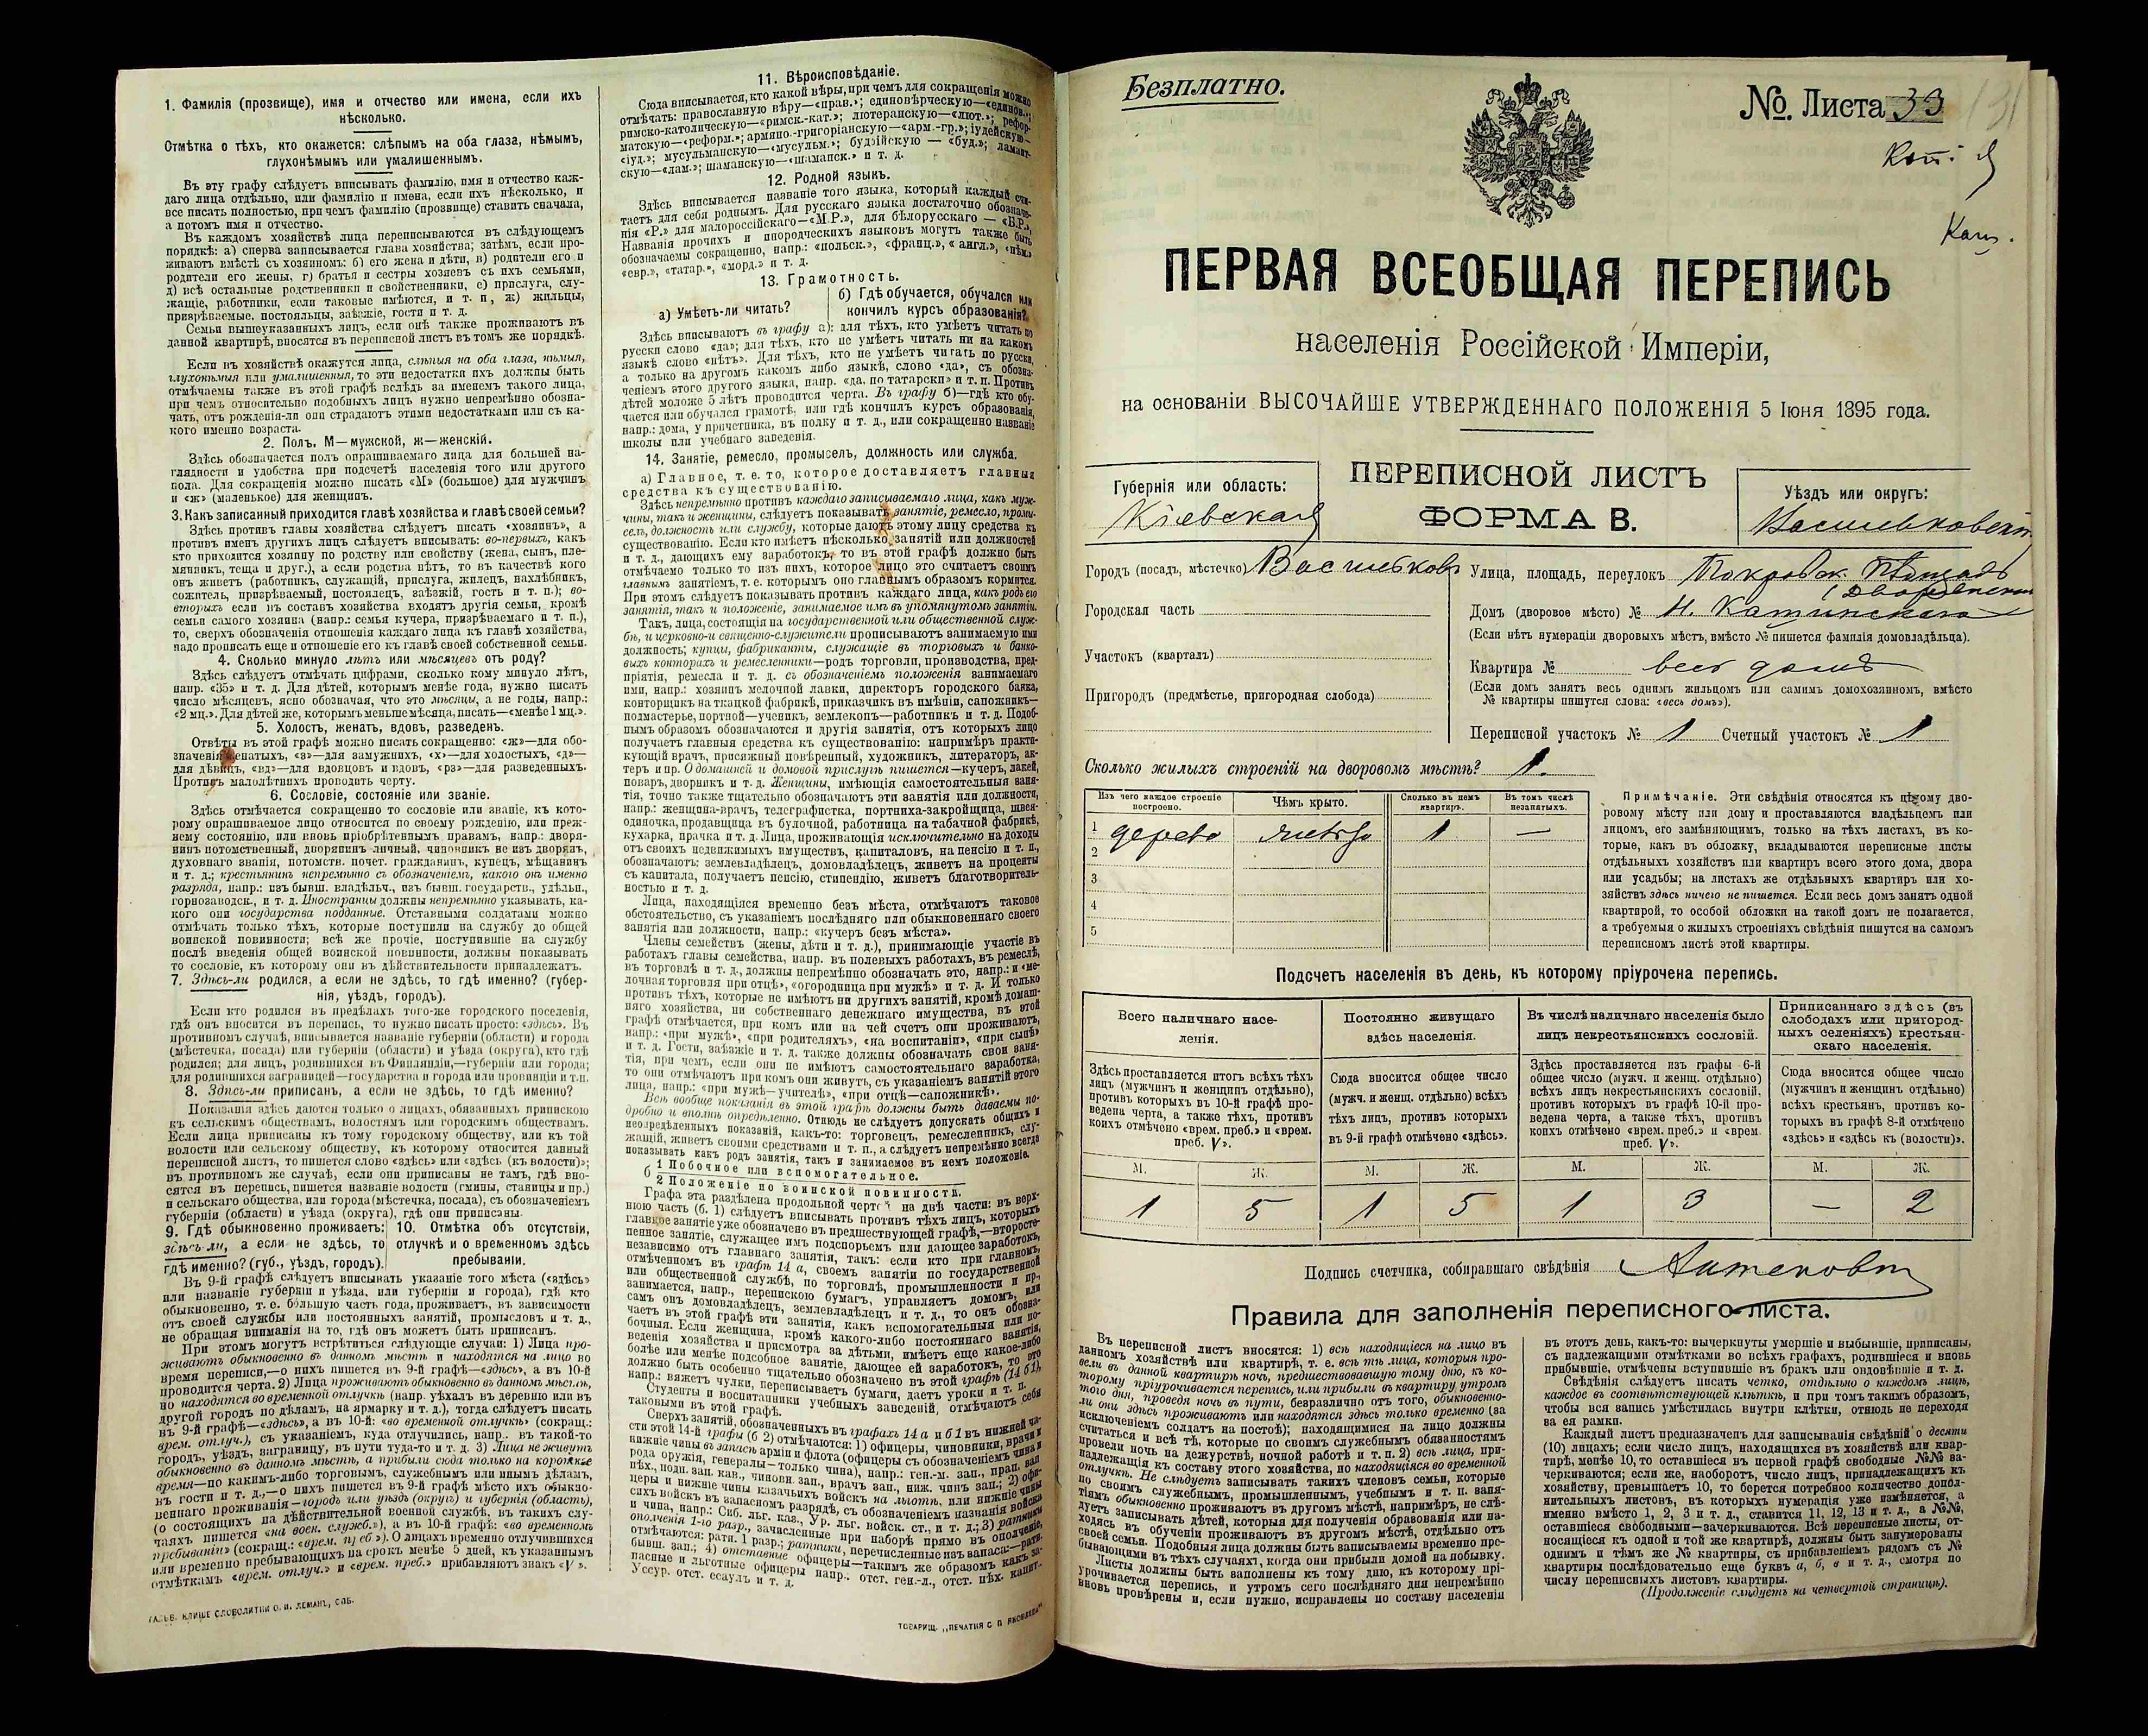 1. Фамилія (прозвище), имя и отчество или имена, если ихъ
нѣсколько.
Отмѣтка о тѣхъ, кто окажется: слѣпымъ на оба глаза, нѣмымъ,
глухонѣмымъ или умалишеннымъ.
Въ эту графу слѣдуетъ вписывать фамилію, имя и отчество каж-
даго лица отдѣльно, или фамилію и имена, если ихъ нѣсколько, и
все писать полностью, при чемъ фамилію (прозвище) ставить сначала,
а потомъ имя и отчество.
Въ каждомъ хозяйствѣ лица переписываются въ слѣдующемъ
порядкѣ: а) сперва записывается глава хозяйства; затѣмъ, если про-
живаютъ вмѣстѣ съ хозяиномъ: б) его жена и дѣти, в) родители его и
родители его жены, г) братья и сестры хозяевъ съ ихъ семьями,
д) всѣ остальные родственники и свойственники, е) прислуга, слу-
жащіе, работники, если таковые имѣются, и т. п, ж) жильцы,
призрѣваемые, постояльцы, заѣзжіе, гости и т. д.
Семьи вышеуказанныхъ лицъ, если онѣ также проживаютъ въ
данной квартирѣ, вносятся въ переписной листъ въ томъ же порядкѣ.
Если въ хозяйствѣ окажутся лица, слѣпыя на оба глаза, нѣмыя,
глухонѣмыя или умалишенныя, то эти недостатки ихъ должны быть
отмѣчаемы также въ этой графѣ вслѣдъ за именемъ такого лица,
при чемъ относительно подобныхъ лицъ нужно непремѣнно обозна-
чать, отъ рожденія-ли они страдаютъ этими недостатками или съ ка-
кого именно возраста.
2. Полъ. М—мужской, ж—женскій.
Здѣсь обозначается полъ опрашиваемаго лица для большей на-
глядности и удобства при подсчетѣ населенія того или другого
пола. Для сокращенія можно писать «М» (большое) для мужчинъ
и «ж» (маленькое) для женщинъ.
3. Какъ записанный приходится главѣ хозяйства и главѣ своей семьи?
Здѣсь противъ главы хозяйства слѣдуетъ писать «хозяинъ», а
противъ именъ другихъ лицъ слѣдуетъ вписывать: во-первыхъ, какъ
кто приходится хозяину по родству или свойству (жена, сынъ, пле-
мянникъ, теща и друг.), а если родства нѣтъ, то въ качествѣ кого
онъ живетъ (работникъ, служащій, прислуга, жилецъ, нахлѣбникъ,
сожитель, призрѣваемый, постоялецъ, заѣзжій, гость и т. п.); во-
вторыхъ если въ составъ хозяйства входятъ другія семьи, кромѣ
семьи самого хозяина (напр.: семья кучера, призрѣваемаго и т. п.),
то, сверхъ обозначенія отношенія каждаго лица къ главѣ хозяйства,
надо прописать еще и отношеніе его къ главѣ своей собственной семьи.
4. Сколько минуло лѣтъ или мѣсяцевъ отъ роду?
Здѣсь слѣдуетъ отмѣчать цифрами, сколько кому минуло лѣтъ,
напр. «35» и т. д. Для дѣтей, которымъ менѣе года, нужно писать
число мѣсяцевъ, ясно обозначая, что это мѣсяцы, а не годы, напр.:
«2 мц.». Для дѣтей же, которымъ меньше мѣсяца, писать—«менѣе 1 мц.».
5. Холостъ, женатъ, вдовъ, разведенъ.
Отвѣты въ этой графѣ можно писать сокращенно: «ж»—для обо-
значенія женатыхъ, «з»—для замужнихъ, «х»—для холостыхъ, «д»—
для дѣвицъ, «вд»—для вдовцовъ и вдовъ, «рз»—для разведенныхъ.
Противъ малолѣтнихъ проводить черту.
6. Сословіе, состояніе или званіе.
Здѣсь отмѣчается сокращенно то сословіе или званіе, къ кото-
рому опрашиваемое лицо относится по своему рожденію, или преж-
нему состоянію, или вновь пріобрѣтеннымъ правамъ, напр.: дворя-
нинъ потомственный, дворянинъ личный, чиновникъ не изъ дворянъ,
духовнаго званія, потомств. почет. гражданинъ, купецъ, мѣщанинъ
и т. д.; крестьянинъ непремѣнно съ обозначеніемъ, какого онъ именно
разряда, напр.: изъ бывш. владѣльч., изъ бывш. государств., удѣльн.,
горнозаводск., и т. д. Иностранцы должны непремѣнно указывать, ка-
кого они государства подданные. Отставными солдатами можно
отмѣчать только тѣхъ, которые поступили на службу до общей
воинской повинности; всѣ же прочіе, поступившіе на службу
послѣ введенія общей воинской повинности, должны показывать
то сословіе, къ которому они въ дѣйствительности принадлежатъ.
7. Здѣсь-ли родился, а если не здѣсь, то гдѣ именно? (губер-
нія, уѣздъ, городъ).
Если кто родился въ предѣлахъ того-же городского поселенія,
гдѣ онъ вносится въ перепись, то нужно писать просто: «здѣсь». Въ
противномъ случаѣ, вписывается названіе губерніи (области) и города
(мѣстечка, посада) или губерніи (области) и уѣзда (округа), кто гдѣ
родился; для лицъ, родившихся въ Финляндіи,—губерніи или города;
для родившихся заграницей—государства и города или провинціи и т.п.
8. Здѣсь-ли приписанъ, а если не здѣсь, то гдѣ именно?
Показанія здѣсь даются только о лицахъ, обязанныхъ припискою
къ сельскимъ обществамъ, волостямъ или городскимъ обществамъ.
Если лица приписаны къ тому городскому обществу, или къ той
волости или сельскому обществу, къ которому относится данный
переписной листъ, то пишется слово «здѣсь» или «здѣсь (къ волости)»;
въ противномъ же случаѣ, если они приписаны не тамъ, гдѣ вно-
сятся въ перепись, пишется названіе волости (гмины, станицы и пр.)
и сельскаго общества, или города (мѣстечка, посада), съ обозначеніемъ
губерніи (области) и уѣзда (округа), гдѣ они приписаны.
9. Гдѣ обыкновенно проживаетъ:
здѣсь-ли, а если не здѣсь, то
гдѣ именно? (губ., уѣздъ, городъ).
10. Отмѣтка объ отсутствіи,
отлучкѣ и о временномъ здѣсь
пребываніи.
Въ 9-й графѣ слѣдуетъ вписывать указаніе того мѣста («здѣсь»
или названіе губерніи и уѣзда, или губерніи и города), гдѣ кто
обыкновенно, т. е. бо́льшую часть года, проживаетъ, въ зависимости
отъ своей службы или постоянныхъ занятій, промысловъ и т. д.,
не обращая вниманія на то, гдѣ онъ можетъ быть приписанъ.
При этомъ могутъ встрѣтиться слѣдующіе случаи: 1) Лица про-
живаютъ обыкновенно въ данномъ мѣстѣ и находятся на лицо во
время переписи,—о нихъ пишется въ 9-й графѣ—«здѣсь», а въ 10-й
проводится черта. 2) Лица проживаютъ обыкновенно въ данномъ мѣстѣ,
но находятся во временной отлучкѣ (напр. уѣхалъ въ деревню или въ
другой городъ по дѣламъ, на ярмарку и т. д.), тогда слѣдуетъ писать
въ 9-й графѣ—«здѣсь», а въ 10-й: «во временной отлучкѣ» (сокращ.:
врем. отлуч.), съ указаніемъ, куда отлучились, напр.. въ такой-то
городъ, уѣздъ, заграницу, въ пути туда-то и т. д. 3) Лица не живутъ
обыкновенно въ данномъ мѣстѣ, а прибыли сюда только на короткое
время—по какимъ-либо торговымъ, служебнымъ или инымъ дѣламъ,
въ гости и т. д.,—о нихъ пишется въ 9-й графѣ мѣсто ихъ обыкно-
веннаго проживанія—городъ или уѣздъ (округъ) и губернія (область),
(о состоящихъ на дѣйствительной военной службѣ, въ такихъ слу-
чаяхъ пишется «на воен. служб.»), а въ 10-й графѣ: «во временномъ
пребываніи» (сокращ.: «врем. преб»). О лицахъ временно отлучившихся
или временно пребывающихъ на срокъ менѣе 5 дней, къ указаннымъ
отмѣткамъ «врем. отлуч.» и «врем. преб.» прибавляютъ знакъ «V».
ГАЛЬВ. КЛИШЕ СЛОВОЛИТНИ О. И. ЛЕМАНЪ, СПБ.
11. Вѣроисповѣданіе.
Сюда вписывается, кто какой вѣры, при чемъ для сокращенія можно
отмѣчать: православную вѣру—«прав.»; единовѣрческую—«единов.»;
римско-католическую—«римск.-кат.»; лютеранскую—«лют.»; рефор-
матскую—«реформ.»; армяно-григоріанскую—«арм.-гр.»; іудейскую—
«іуд.»; мусульманскую—«мусульм.»; буддійскую — «буд.»; ламаит-
скую—«лам.»; шаманскую—«шаманск.» и т. д.
12. Родной языкъ.
Здѣсь вписывается названіе того языка, который каждый счи-
таетъ для себя роднымъ. Для русскаго языка достаточно обозначе-
нія «Р.» для малороссійскаго—«М.Р.», для бѣлорусскаго — «Б.Р.»,
Названія прочихъ и инородческихъ языковъ могутъ также быть
обозначаемы сокращенно, напр.: «польск.», «франц.», « англ.», «нѣм.»
«евр.», «татар.», «морд.» и т. д.
13. Грамотность.
а) Умѣетъ-ли читать?
б) Гдѣ обучается, обучался или
кончилъ курсъ образованія?
Здѣсь вписываютъ въ графу а): для тѣхъ, кто умѣетъ читать по
русски слово «да»; для тѣхъ, кто не умѣетъ читать ни на какомъ
языкѣ слово «нѣтъ». Для тѣхъ, кто не умѣетъ читать по русски,
а только на другомъ какомъ либо языкѣ, слово «да», съ обозна-
ченіемъ этого другого языка, напр. «да, по татарски» и т. п. Противъ
дѣтей моложе 5 лѣтъ проводится черта. Въ графу б)—гдѣ кто обу-
чается или обучался грамотѣ, или гдѣ кончилъ курсъ образованія,
напр.: дома, у причетника, въ полку и т. д., или сокращенно названіе
школы или учебнаго заведенія.
14. Занятіе, ремесло, промыселъ, должность или служба.
а) Главное, т. е. то, которое доставляетъ главныя
средства къ существованію.
Здѣсь непремѣнно противъ каждаго записываемаго лица, какъ муж-
чины, такъ и женщины, слѣдуетъ показывать занятіе, ремесло, промы-
селъ, должность или службу, которые даютъ этому лицу средства къ
существованію. Если кто имѣетъ нѣсколько занятій или должностей
и т. д., дающихъ ему заработокъ, то въ этой графѣ должно быть
отмѣчаемо только то изъ нихъ, которое лицо это считаетъ своимъ
главнымъ занятіемъ, т. е. которымъ оно главнымъ образомъ кормится.
При этомъ слѣдуетъ показывать противъ каждаго лица, какъ родъ его
занятія, такъ и положеніе, занимаемое имъ въ упомянутомъ занятіи.
Такъ, лица, состоящія на государственной или общественной служ-
бѣ, и церковно-и священно-служители прописываютъ занимаемую ими
должность; купцы, фабриканты, служащіе въ торговыхъ и банко-
выхъ конторахъ и ремесленники—родъ торговли, производства, пред-
пріятія, ремесла и т. д. съ обозначеніемъ положенія занимаемаго
ими, напр.: хозяинъ мелочной лавки, директоръ городского банка,
конторщикъ на ткацкой фабрикѣ, приказчикъ въ имѣніи, сапожникъ—
подмастерье, портной—ученикъ, землекопъ—работникъ и т. д. Подоб-
нымъ образомъ обозначаются и другія занятія, отъ которыхъ лицо
получаетъ главныя средства къ существованію: напримѣръ практи-
кующій врачъ, присяжный повѣренный, художникъ, литераторъ, ак-
теръ и пр. О домашней и домовой прислугѣ пишется—кучеръ, лакей,
поваръ, дворникъ и т. д. Женщины, имѣющія самостоятельныя заня-
тія, точно также тщательно обозначаютъ эти занятія или должности,
напр.: женщина-врачъ, телеграфистка, портниха-закройщица, швея-
одиночка, продавщица въ булочной, работница на табачной фабрикѣ,
кухарка, прачка и т. д. Лица, проживающія исключительно на доходы
отъ своихъ недвижимыхъ имуществъ, капиталовъ, на пенсію и т. п.,
обозначаютъ: землевладѣлецъ, домовладѣлецъ, живетъ на проценты
съ капитала, получаетъ пенсію, стипендію, живетъ благотворитель-
ностью и т. д.
Лица, находящіяся временно безъ мѣста, отмѣчаютъ таковое
обстоятельство, съ указаніемъ послѣдняго или обыкновеннаго своего
занятія или должности, напр.: «кучеръ безъ мѣста».
Члены семействъ (жены, дѣти и т. д.), принимающіе участіе въ
работахъ главы семейства, напр. въ полевыхъ работахъ, въ ремеслѣ,
въ торговлѣ и т. д., должны непремѣнно обозначать это, напр.: и «ме-
лочная торговля при отцѣ», «огородница при мужѣ» и т. д. И только
противъ тѣхъ, которые не имѣютъ ни другихъ занятій, кромѣ домаш-
няго хозяйства, ни собственнаго денежнаго имущества, въ этой
графѣ отмѣчается, при комъ или на чей счетъ они проживаютъ,
напр.: «при мужѣ», «при родителяхъ», «на воспитаніи», «при сынѣ»
и т. д. Гости, заѣзжіе и т. д. также должны обозначать свои заня-
тія, при чемъ, если они не имѣютъ самостоятельнаго заработка,
то они отмѣчаютъ при комъ они живутъ, съ указаніемъ занятій этого
лица, напр.: «при мужѣ—учителѣ», «при отцѣ—сапожникѣ».
Всѣ вообще показанія въ этой графѣ должны быть даваемы по-
дробно и вполнѣ опредѣленно. Отнюдь не слѣдуетъ допускать общихъ и
неопредѣленныхъ показаній, какъ-то: торговецъ, ремесленникъ, слу-
жащій, живетъ своими средствами и т. п., а слѣдуетъ непремѣнно всегда
показывать какъ родъ занятія, такъ и занимаемое въ немъ положеніе.
б 1 Побочное или вспомогательное.
2 Положеніе по воинской повинности.
Графа эта раздѣлена продольной чертой на двѣ части: въ верх-
нюю часть (б. 1) слѣдуетъ вписывать противъ тѣхъ лицъ, которыхъ
главное занятіе уже обозначено въ предшествующей графѣ,—второсте-
пенное занятіе, служащее имъ подспорьемъ или дающее заработокъ,
независимо отъ главнаго занятія, такъ: если кто при главномъ,
отмѣченномъ въ графѣ 14 а, своемъ занятіи по государственной
или общественной службѣ, по торговлѣ, промышленности и пр.,
занимается, напр., перепискою бумагъ, управляетъ домомъ, или
самъ онъ домовладѣлецъ, землевладѣлецъ и т. д., то онъ обозна-
чаетъ въ этой графѣ эти занятія, какъ вспомогательныя или по-
бочныя. Если женщина, кромѣ какого-либо постояннаго занятія,
веденія хозяйства и присмотра за дѣтьми, имѣетъ еще какое-либо
болѣе или менѣе подсобное занятіе, дающее ей заработокъ, то это
должно быть особенно тщательно обозначено въ этой графѣ (14 б 1),
напр.: вяжетъ чулки, переписываетъ бумаги, даетъ уроки и т. п.
Студенты и воспитанники учебныхъ заведеній, отмѣчаютъ себя
таковыми въ этой графѣ.
Сверхъ занятій, обозначенныхъ въ графахъ 14 а и б 1 въ нижней ча-
сти этой 14-й графы (б 2) отмѣчаются: 1) офицеры, чиновники, врачи и
нижніе чины въ запасѣ арміи и флота (офицеры съ обозначеніемъ чина и
рода оружія, генералы—только чина), напр.: ген.-м. зап., прап. зап.
пѣх., подп. зап. кав., чиновн. зап., врачъ зап., ниж. чинъ зап.; 2) офи-
церы и нижніе чины казачьихъ войскъ на льготѣ, или нижніе чины
сихъ войскъ въ запасномъ разрядѣ, съ обозначеніемъ названія войска
и чина, напр.: Сиб. льг. каз., Ур. льг. войск. ст., и т. д.; 3) ратники
ополченія 1-го разр., зачисленные при наборѣ прямо въ ополченіе,
отмѣчаются: ратн. 1 разр.; ратники, перечисленные изъ запаса:—ратн.
бывш. зап.; 4) отставные офицеры—такимъ же образомъ какъ за-
пасные и льготные офицеры напр.. отст. ген.-л., отст. пѣх. капит.,
Уссур. отст. есаулъ и т. д.
ТОВАРИЩ. „ПЕЧАТНЯ С. П. ЯКОВЛЕВА“.
Безплатно.
№. Листа 33
131
ПЕРВАЯ ВСЕОБЩАЯ ПЕРЕПИСЬ
населенія Россійской Имперіи,
на основаніи ВЫСОЧАЙШЕ УТВЕРЖДЕННАГО ПОЛОЖЕНІЯ 5 Іюня 1895 года.
Губернія или область:
Кіевская
ПЕРЕПИСНОЙ ЛИСТЪ
ФОРМА В.
Уѣздъ или округъ:
Васильковскій
Городъ (посадъ, мѣстечко) Васильковъ
Городская часть
Участокъ (кварталъ)
Пригородъ (предмѣстье, пригородная слобода)
Улица, площадь, переулокъ Покровск. Площадь
Домъ (дворовое мѣсто) № Н. Катинскаго
(Если нѣтъ нумераціи дворовыхъ мѣстъ, вмѣсто № пишется фамилія домовладѣльца).
Квартира № весь домъ
(Если домъ занятъ весь однимъ жильцомъ или самимъ домохозяиномъ, вмѣсто
№ квартиры пишутся слова: «весь домъ»).
Переписной участокъ № 1 Счетный участокъ № 1
Сколько жилыхъ строеній на дворовомъ мѣстѣ? 1.
Изъ чего каждое строеніе
построено.
Чѣмъ крыто.
Сколько въ немъ
квартиръ.
Въ томъ числѣ
незанятыхъ.
1 дерево 1 —
2
3
4
5
Примѣчаніе. Эти свѣдѣнія относятся къ цѣлому дво-
ровому мѣсту или дому и проставляются владѣльцемъ или
лицомъ, его замѣняющимъ, только на тѣхъ листахъ, въ ко-
торые, какъ въ обложку, вкладываются переписные листы
отдѣльныхъ хозяйствъ или квартиръ всего этого дома, двора
или усадьбы; на листахъ же отдѣльныхъ квартиръ или хо-
зяйствъ здѣсь ничего не пишется. Если весь домъ занятъ одной
квартирой, то особой обложки на такой домъ не полагается,
а требуемыя о жилыхъ строеніяхъ свѣдѣнія пишутся на самомъ
переписномъ листѣ этой квартиры.
Подсчетъ населенія въ день, къ которому пріурочена перепись.
Всего наличнаго насе-
ленія.
Здѣсь проставляется итогъ всѣхъ тѣхъ
лицъ (мужчинъ и женщинъ отдѣльно),
противъ которыхъ въ 10-й графѣ про-
ведена черта, а также тѣхъ, противъ
коихъ отмѣчено «врем. преб.» и «врем.
преб. V».
Постоянно живущаго
здѣсь населенія.
Сюда вносится общее число
(мужч. и женщ. отдѣльно) всѣхъ
тѣхъ лицъ, противъ которыхъ
въ 9-й графѣ отмѣчено «здѣсь».
Въ числѣ наличнаго населенія было
лицъ некрестьянскихъ сословій.
Здѣсь проставляется изъ графы 6-й
общее число (мужч. и женщ. отдѣльно)
всѣхъ лицъ некрестьянскихъ сословій,
противъ которыхъ въ графѣ 10-й про-
ведена черта, а также тѣхъ, противъ
коихъ отмѣчено «врем. преб.» и «врем.
преб. V».
Приписаннаго здѣсь (въ
слободахъ или пригород-
ныхъ селеніяхъ) крестьян-
скаго населенія.
Сюда вносится общее число
(мужчинъ и женщинъ отдѣльно)
всѣхъ крестьянъ, противъ ко-
торыхъ въ графѣ 8-й отмѣчено
«здѣсь» и «здѣсь къ (волости)».
М. Ж. М. Ж. М. Ж. М. Ж.
1 5 1 5 1 3 — 2
Подпись счетчика, собиравшаго свѣдѣнія
Правила для заполненія переписного листа.
Въ переписной листъ вносятся: 1) всѣ находящіеся на лицо въ
данномъ хозяйствѣ или квартирѣ, т. е. всѣ тѣ лица, которыя про-
вели въ данной квартирѣ ночь, предшествовавшую тому дню, къ ко-
торому пріурочивается перепись, или прибыли въ квартиру утромъ
того дня, проведя ночь въ пути, безразлично отъ того, обыкновенно-
ли они здѣсь проживаютъ или находятся здѣсь только временно (за
исключеніемъ солдатъ на постоѣ); находящимися на лицо должны
считаться и всѣ тѣ, которые по своимъ служебнымъ обязанностямъ
провели ночь на дежурствѣ, ночной работѣ и т. п. 2) всѣ лица, при-
надлежащія къ составу этого хозяйства, но находящіяся во временной
отлучкѣ. Не слѣдуетъ записывать такихъ членовъ семьи, которые
по своимъ служебнымъ, промышленнымъ, учебнымъ и т. п. заня-
тіямъ обыкновенно проживаютъ въ другомъ мѣстѣ, напримѣръ, не слѣ-
дуетъ записывать дѣтей, которыя для полученія образованія или на-
ходясь въ обученіи проживаютъ въ другомъ мѣстѣ, отдѣльно отъ
своей семьи. Подобныя лица должны быть записываемы временно пре-
бывающими въ тѣхъ случаяхъ, когда они прибыли домой на побывку.
Листы должны быть заполнены къ тому дню, къ которому прі-
урочивается перепись, и утромъ сего послѣдняго дня непремѣнно
вновь провѣрены и, если нужно, исправлены по составу населенія
въ этотъ день, какъ-то: вычеркнуты умершіе и выбывшіе, приписаны,
съ надлежащими отмѣтками во всѣхъ графахъ, родившіеся и вновь
прибывшіе, отмѣчены вступившіе въ бракъ или овдовѣвшіе и т. д.
Свѣдѣнія слѣдуетъ писать четко, отдѣльно о каждомъ лицѣ,
каждое въ соотвѣтствующей клѣткѣ, и при томъ такимъ образомъ,
чтобы вся запись умѣстилась внутри клѣтки, отнюдь не переходя
за ея рамки.
Каждый листъ предназначенъ для записыванія свѣдѣній о десяти
(10) лицахъ; если число лицъ, находящихся въ хозяйствѣ или квар-
тирѣ, менѣе 10, то оставшіеся въ первой графѣ свободные №№ за-
черкиваются; если же, наоборотъ, число лицъ, принадлежащихъ къ
хозяйству, превышаетъ 10, то берется потребное количество допол-
нительныхъ листовъ, въ которыхъ нумерація уже измѣняется, а
именно вмѣсто 1, 2, 3 и т. д., ставится 11, 12, 13 и т. д., а №№,
оставшіеся свободными—зачеркиваются. Всѣ переписные листы, от-
носящіеся къ одной и той же квартирѣ, должны быть занумерованы
однимъ и тѣмъ же № квартиры, съ прибавленіемъ рядомъ съ №
квартиры послѣдовательно еще буквъ а, б, в и т. д., смотря по
числу переписныхъ листовъ квартиры.
(Продолженіе слѣдуетъ на четвертой страницѣ).